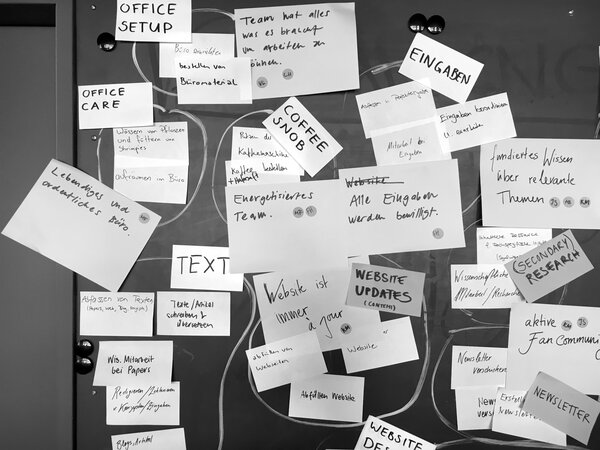 OFFICE
SETUP
Team hat alles
was es braucht
um arbeiten zu
können.
Büro einrichten
bestellen von
Büromaterial
OFFICE
CARE
Wässern von Pflanzen
und füttern von
Shrimpies
Aufräumen im Büro
Lebendiges und
ordentliches Büro.
COFFEE
SNOB
Kaffeemaschine
Kaffee bestellen
Energetisiertes
Team.
EINGABEN
Eingaben koordinieren
Mitarbeit bei
Eingaben
Website
Alle Eingaben
werden bewilligt.
fundiertes Wissen
über relevante
Themen
(SECONDARY)
RESEARCH
Wissenschaftliche
Mitarbeit / Recherche
TEXT
Abfassen von Texten
Texte/Artikel
schreiben &
übersetzen
Wis. Mitarbeit
bei Papers
Blogs, Artikel
WEBSITE
UPDATES
(CONTENT)
Website ist
immer à jour
Abfüllen von
Webseiten
Website
Abfüllen Website
WEBSITE
aktive
Fan Communi
Newsletter
verschicken
NEWSLETTER
Newsletter